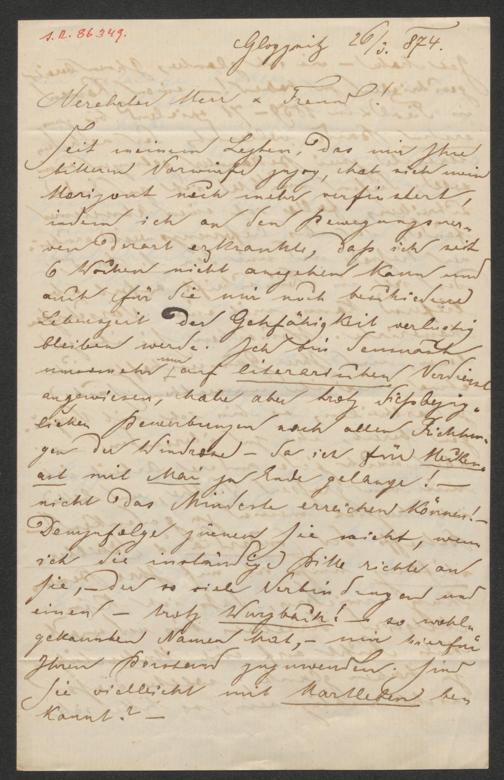 I.N. 86.349.
Gloggnitz 26/3. 874.
Verehrter Herr & Freund!
Seit meinem Letzten, das mir Ihre
bitteren Vorwürfe zuzog, hat sich mein
Horizont noch mehr verfinstert,
indem ich an den Bewegungsner-
ven derart erkrankte, daß ich seit
6 Wochen nicht ausgehen kann und
auch für die mir noch beschiedene
Lebenszeit der Gehfähigkeit verlustig
bleiben werde. Ich bin demnach
nunmehr nur auf literarischen Verdienst
angewiesen, habe aber trotz dießbezüg-
lichen Bewerbungen nach allen Richtun-
gen der Windrose – da ich für
mit Mai zu Ende gelange! –
nicht das Mindeste erreichen können! –
Demzufolge zürnen Sie nicht, wenn
ich die inständige Bitte richte an
Sie, – der so viele Verbindungen und
einen – trotz Wurzbach! – so wohl-
gekannten Namen hat, – mir hierfür
Ihren Beistand zuzuwenden. Sind
Sie vielleicht mit Hartleben be-
kannt? –